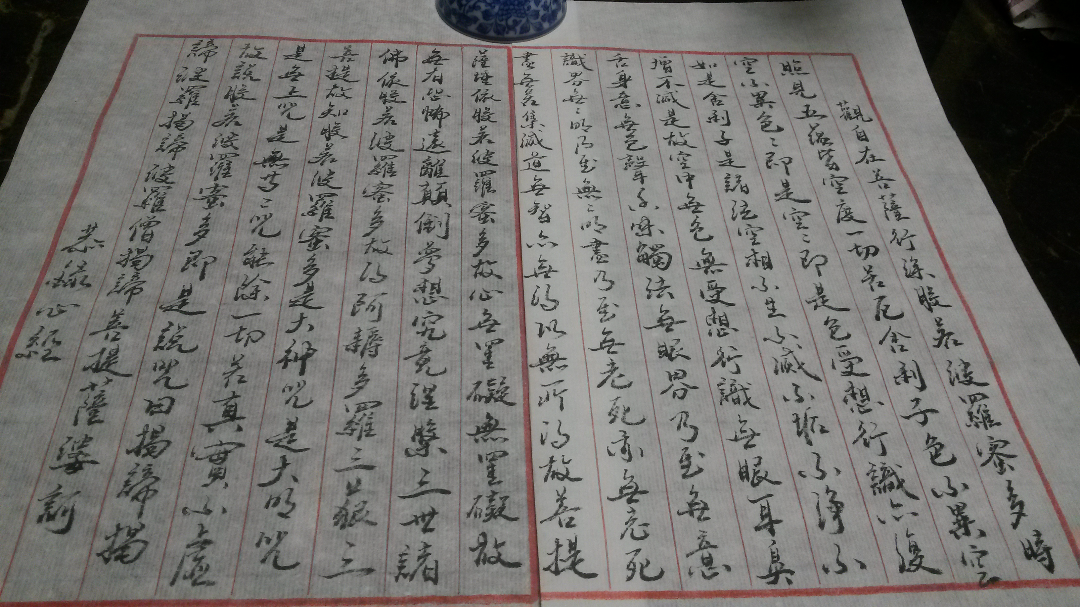 觀自在菩薩行深般若波羅蜜多時
照見五蘊皆空度一切苦厄舍利子色不異空
空不異色〻即是空〻即是色受想行識亦復
如是舍利子是諸法空相不生不滅不垢不淨不
增不減是故空中無色無受想行識無眼耳鼻
舌身意無色聲香味觸法無眼界乃至無意
識界無〻明乃至無〻明盡乃至無老死亦無老死
盡無苦集滅道無智亦無得以無所得故菩提
薩埵依般若波羅蜜多故心無罣礙無罣礙故
無有恐怖遠離顛倒夢想究竟涅槃三世諸
佛依般若波羅蜜多故得阿耨多羅三藐三
菩提故知般若波羅蜜多是大神咒是大明咒
是無上咒是無等〻咒能除一切苦真實不虛
故說般若波羅蜜多即是說咒曰揭諦揭
諦波羅揭諦波羅僧揭諦菩提薩婆訶
恭錄心經